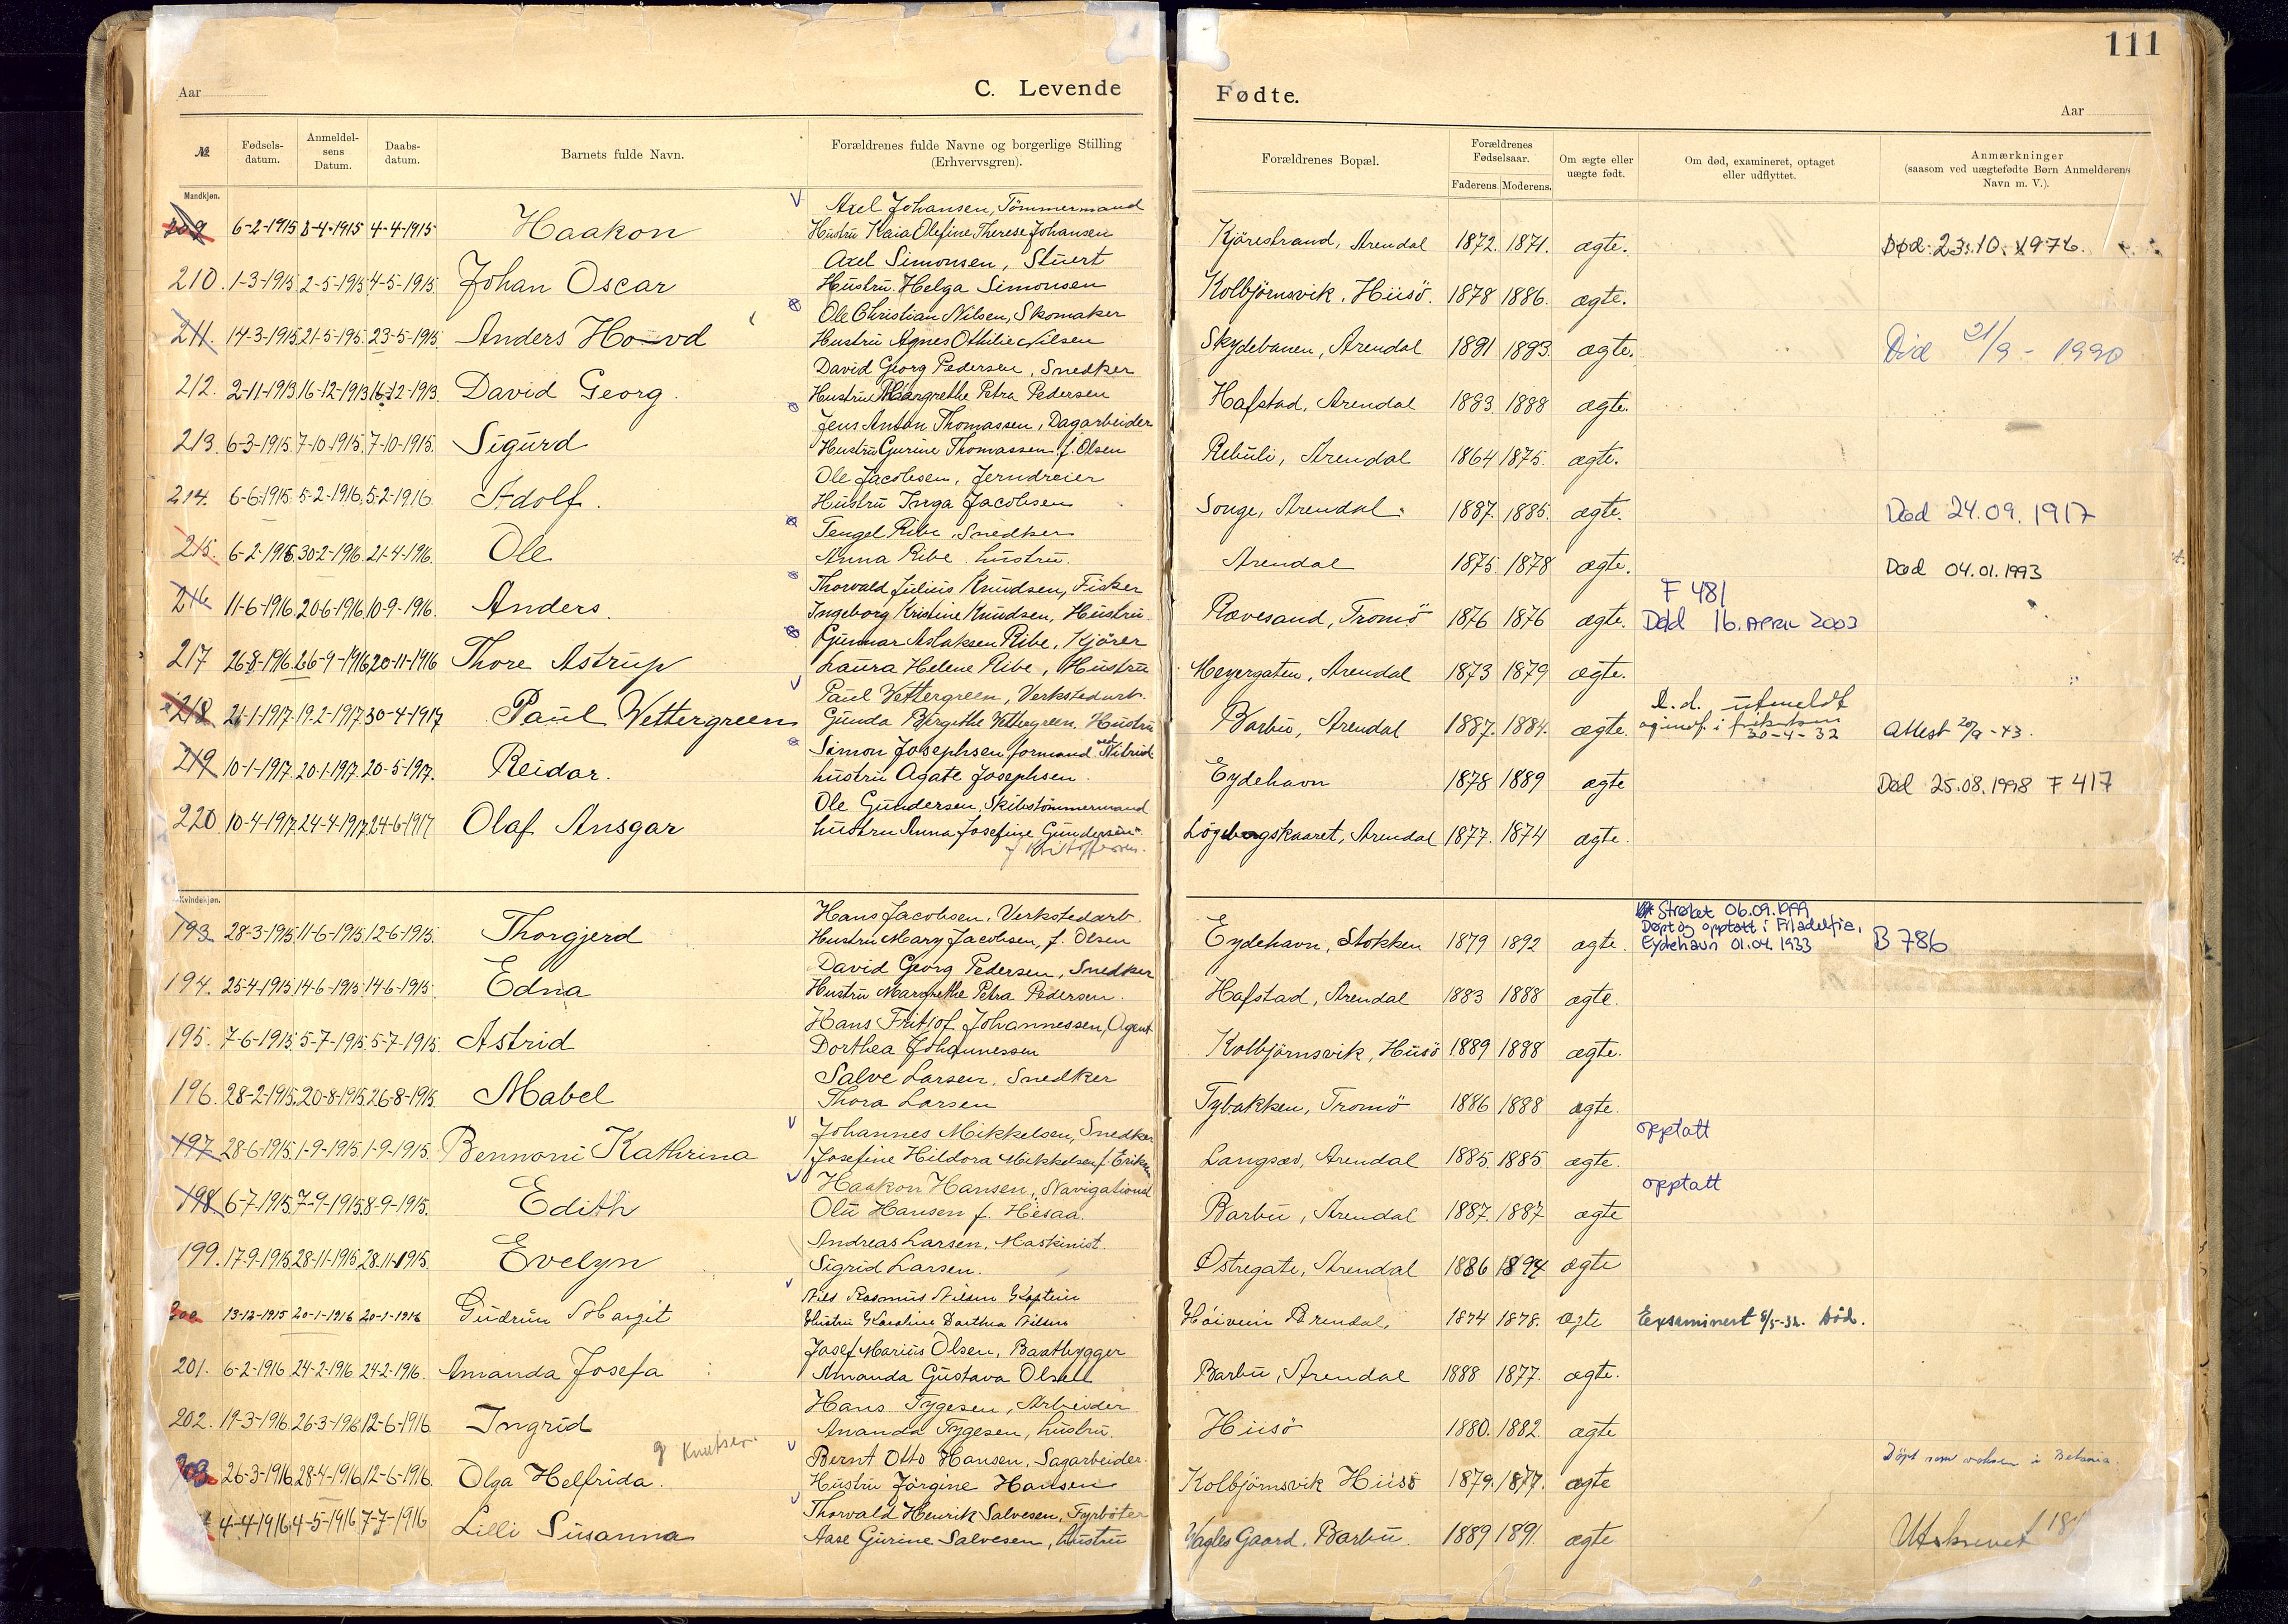 111
Aar
C. Levende Fødte.
Aar
№
Fødselsdatum.
Anmeldelsens Datum.
Daabsdatum.
Barnets fulde Navn.
Forældrenes fulde Navne og borgerlige Stilling (Erhvervsgren).
Forældrenes Bopæl.
Forældrenes Fødselsaar.
Faderens. Moderens.
Om ægte eller uægte født.
Om død, examineret, optaget eller udflyttet.
Anmærkninger (saasom ved uægtefødte Børn Anmelderens Navn m. V.).
Mandkjøn.
209 6-2-1915 3-4-1915 4-4-1915 Haakon Axel Johansen, Tömmermand
Hustru Kaia Olefine Therese Johansen Kjärestrand, Arendal 1872. 1871. ægte. Død. 23.10.1976.
210. 1-3-1915 2-5-1915 4-5-1915 Johan Oscar Axel Simonsen, Stuert
Hustru Helga Simonsen Kolbjörnsvik, Hisö. 1878 1886. ægte.
211. 14-3-1915 21-5-195. 23-5-1915 Anders Hovd Ole Christian Nilsen, Skomaker
Hustru Agnes Othilie Nilsen Skydebanen, Arendal 1891 1893. ægte. Død 21/9 - 1990
212. 2-11-1913 16-12-1913 16-12-1913 David Georg. David Georg Pedersen, Snedker
Hustru Margrethe Petra Pedersen Hafstad, Arendal 1883 1888 ægte.
213. 6-3-1915. 7-10-1915. 7-10-1915. Sigurd Jens Anton Thomassen, Dagarbeider
Hustru Gurine Thomassen f. Olsen Rebuli, Arendal 1864 1875. ægte.
214. 6-6-1915. 5-2-1916. 5-2-1916 Adolf. Ole Jacobsen, Jerndreier
Hustru Inga Jacobsen Songe, Arendal. 1887. 1885. ægte. Død 24.09.1917
215. 6-2-1916. 30-2-1916. 21-4-1916. Ole Tengel Ribe, Snedker
Anna Ribe hustru. Arendal 1875 1878 ægte. Død 04.01.1993
216 11-6-1916. 20-6-1916. 10-9-1916. Anders. Thorvald Julius Knudsen, Fisker
Ingeborg Kristine Knudsen, Hustru. Rævesand, Tromö 1876 1876 ægte. F 481
Død 16. APRIL 2003
217 26-8-1916. 26-9-1916 20-11-1916 Thore Astrup Gunnar Aslaksen Ribe, Kjörer
Laura Helene Ribe, Hustru Meyergaten, Arendal 1873 1879 ægte.
218 21-1-1917. 19-2-1917. 30-4-1917 Paul Vettergreen Paul Vettergreen, Verkstedarb.
Gunda Birgithe Vettergreen. Hustru Barbu, Arendal 1887. 1884. ægte. utmeldt
30-4-32 Attest 20/9-43.
219 10-1-1917. 20-1-1917. 20-5-1917. Reidar. Simon Josephsen formand ved Nitrid
hustru Agate Josephsen. Eydehavn 1878 1889 ægte Død 25.08.1998 F 417
220 10-4-1917. 24-4-1917 24-6-1917 Olaf Ansgar Ole Gundersen, Skibstömmermand
hustru Anna Josefine Gundersen
f Kristoffersen. Lögebergskaaret, Arendal 1877. 1874 ægte.
Kvindekjøn.
193 28-3-1915. 11-6-1915. 12-6-1915. Thorgjerd Hans Jacobsen. Verkstedarb.
Hustru Mary Jacobsen, f. Olsen Eydehavn, Stokken 1879 1892 ægte. Strøket 06.09.1999
Døpt og opptatt i Filadelfia,
Eydehavn 01.04.1933 B 786
194. 25-4-1915 14-6-1915. 14-6-1915. Edna David Georg Pedersen, Snedker
Hustru Margrethe Petra Pedersen. Hafstad, Arendal 1883 1888 ægte.
195. 7-6-1915. 5-7-1915. 5-7-1915. Astrid Hans Fritjof Johannessen, Agent
Dorthea Johannessen Kolbjörnsvik, Hisö 1889 1888 ægte.
196. 28-2-1915. 20-8-1915. 26-8-1915. Mabel Salve Larsen, Snedker
Thora Larsen Tybakken, Tromö 1886 1888 ægte.
197 28-6-1915. 1-9-1915. 1-9-1915. Bennoni Kathrina Johannes Mikkelsen, Snedker
Josefine Hildora Mikkelsen f. Eriksen Langsæ, Arendal 1885. 1885. ægte. opptatt
198 6-7-1915. 7-9-1915. 8-9-1915. Edith Haakon Hansen,
Olu Hansen f. Hesaa. Barbu, Arendal 1887. 1887 ægte opptatt
199. 17-9-1915. 28-11-1915. 28-11-1915. Evelyn Andreas Larsen, Maskinist.
Sigrid Larsen. Østregate, Arendal 1886 1894 ægte
200 13-12-1915 20-1-1916 20-1-1916 Gudrun Margit Nils Rasmus Nilsen Kaptein
Hustru Karoline Dorthea Nilsen Høivein Arendal, 1874 1878. ægte Exsaminert 8/5-32. Død.
201. 6-2-1916 24-2-1916 24-2-1916. Amanda Josefa Josef Marius Olsen, Baatbygger
Amanda Gustava Olsen Barbu, Arendal 1888 1877. ægte.
202. 19-3-1916. 26-3-1916. 12-6-1916. Ingrid Hans Tygesen, Arbeider
Amanda Tygesen, hustru. Hisö 1880. 1882. ægte
203. 26-3-1916. 28-4-1916. 12-6-1916. Olga Helfrida. g Knutsen. Bernt Otto Hansen, Sagarbeider.
Hustru Jörgine Hansen Kolbjörnsvik Hisö 1879. 1877. ægte Döpt som voksen i Betania.
4-4-1916. 4-5-1916 7-7-1916 Lilli Susanna Thorvald Henrik Salvesen, Fyrböter
Aase Gurine Salvesen, hustru Vagles Gaard, Barbu. 1889 1891. ægte Utskrevet